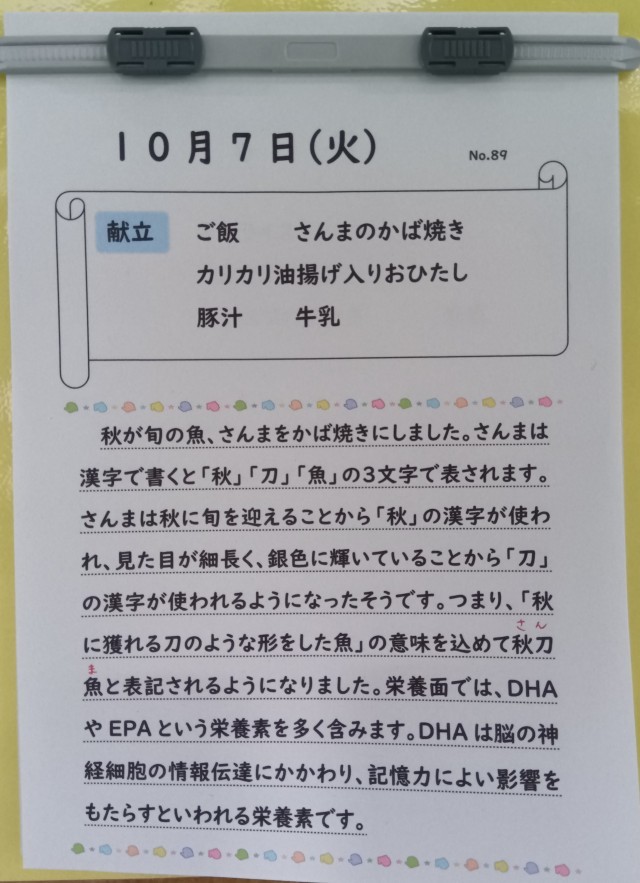 10月7日(火)
No.89
献立 ご飯 さんまのかば焼き
カリカリ油揚げ入りおひたし
豚汁 牛乳
秋が旬の魚、さんまをかば焼きにしました。さんまは
漢字で書くと「秋」「刀」「魚」の3文字で表されます。
さんまは秋に旬を迎えることから「秋」の漢字が使わ
れ、見た目が細長く、銀色に輝いていることから「刀」
の漢字が使われるようになったそうです。つまり、「秋
に獲れる刀のような形をした魚」の意味を込めて秋刀
さん
魚と表記されるようになりました。栄養面では、DHA
ま
やEPAという栄養素を多く含みます。DHAは脳の神
経細胞の情報伝達にかかわり、記憶力によい影響を
もたらすといわれる栄養素です。